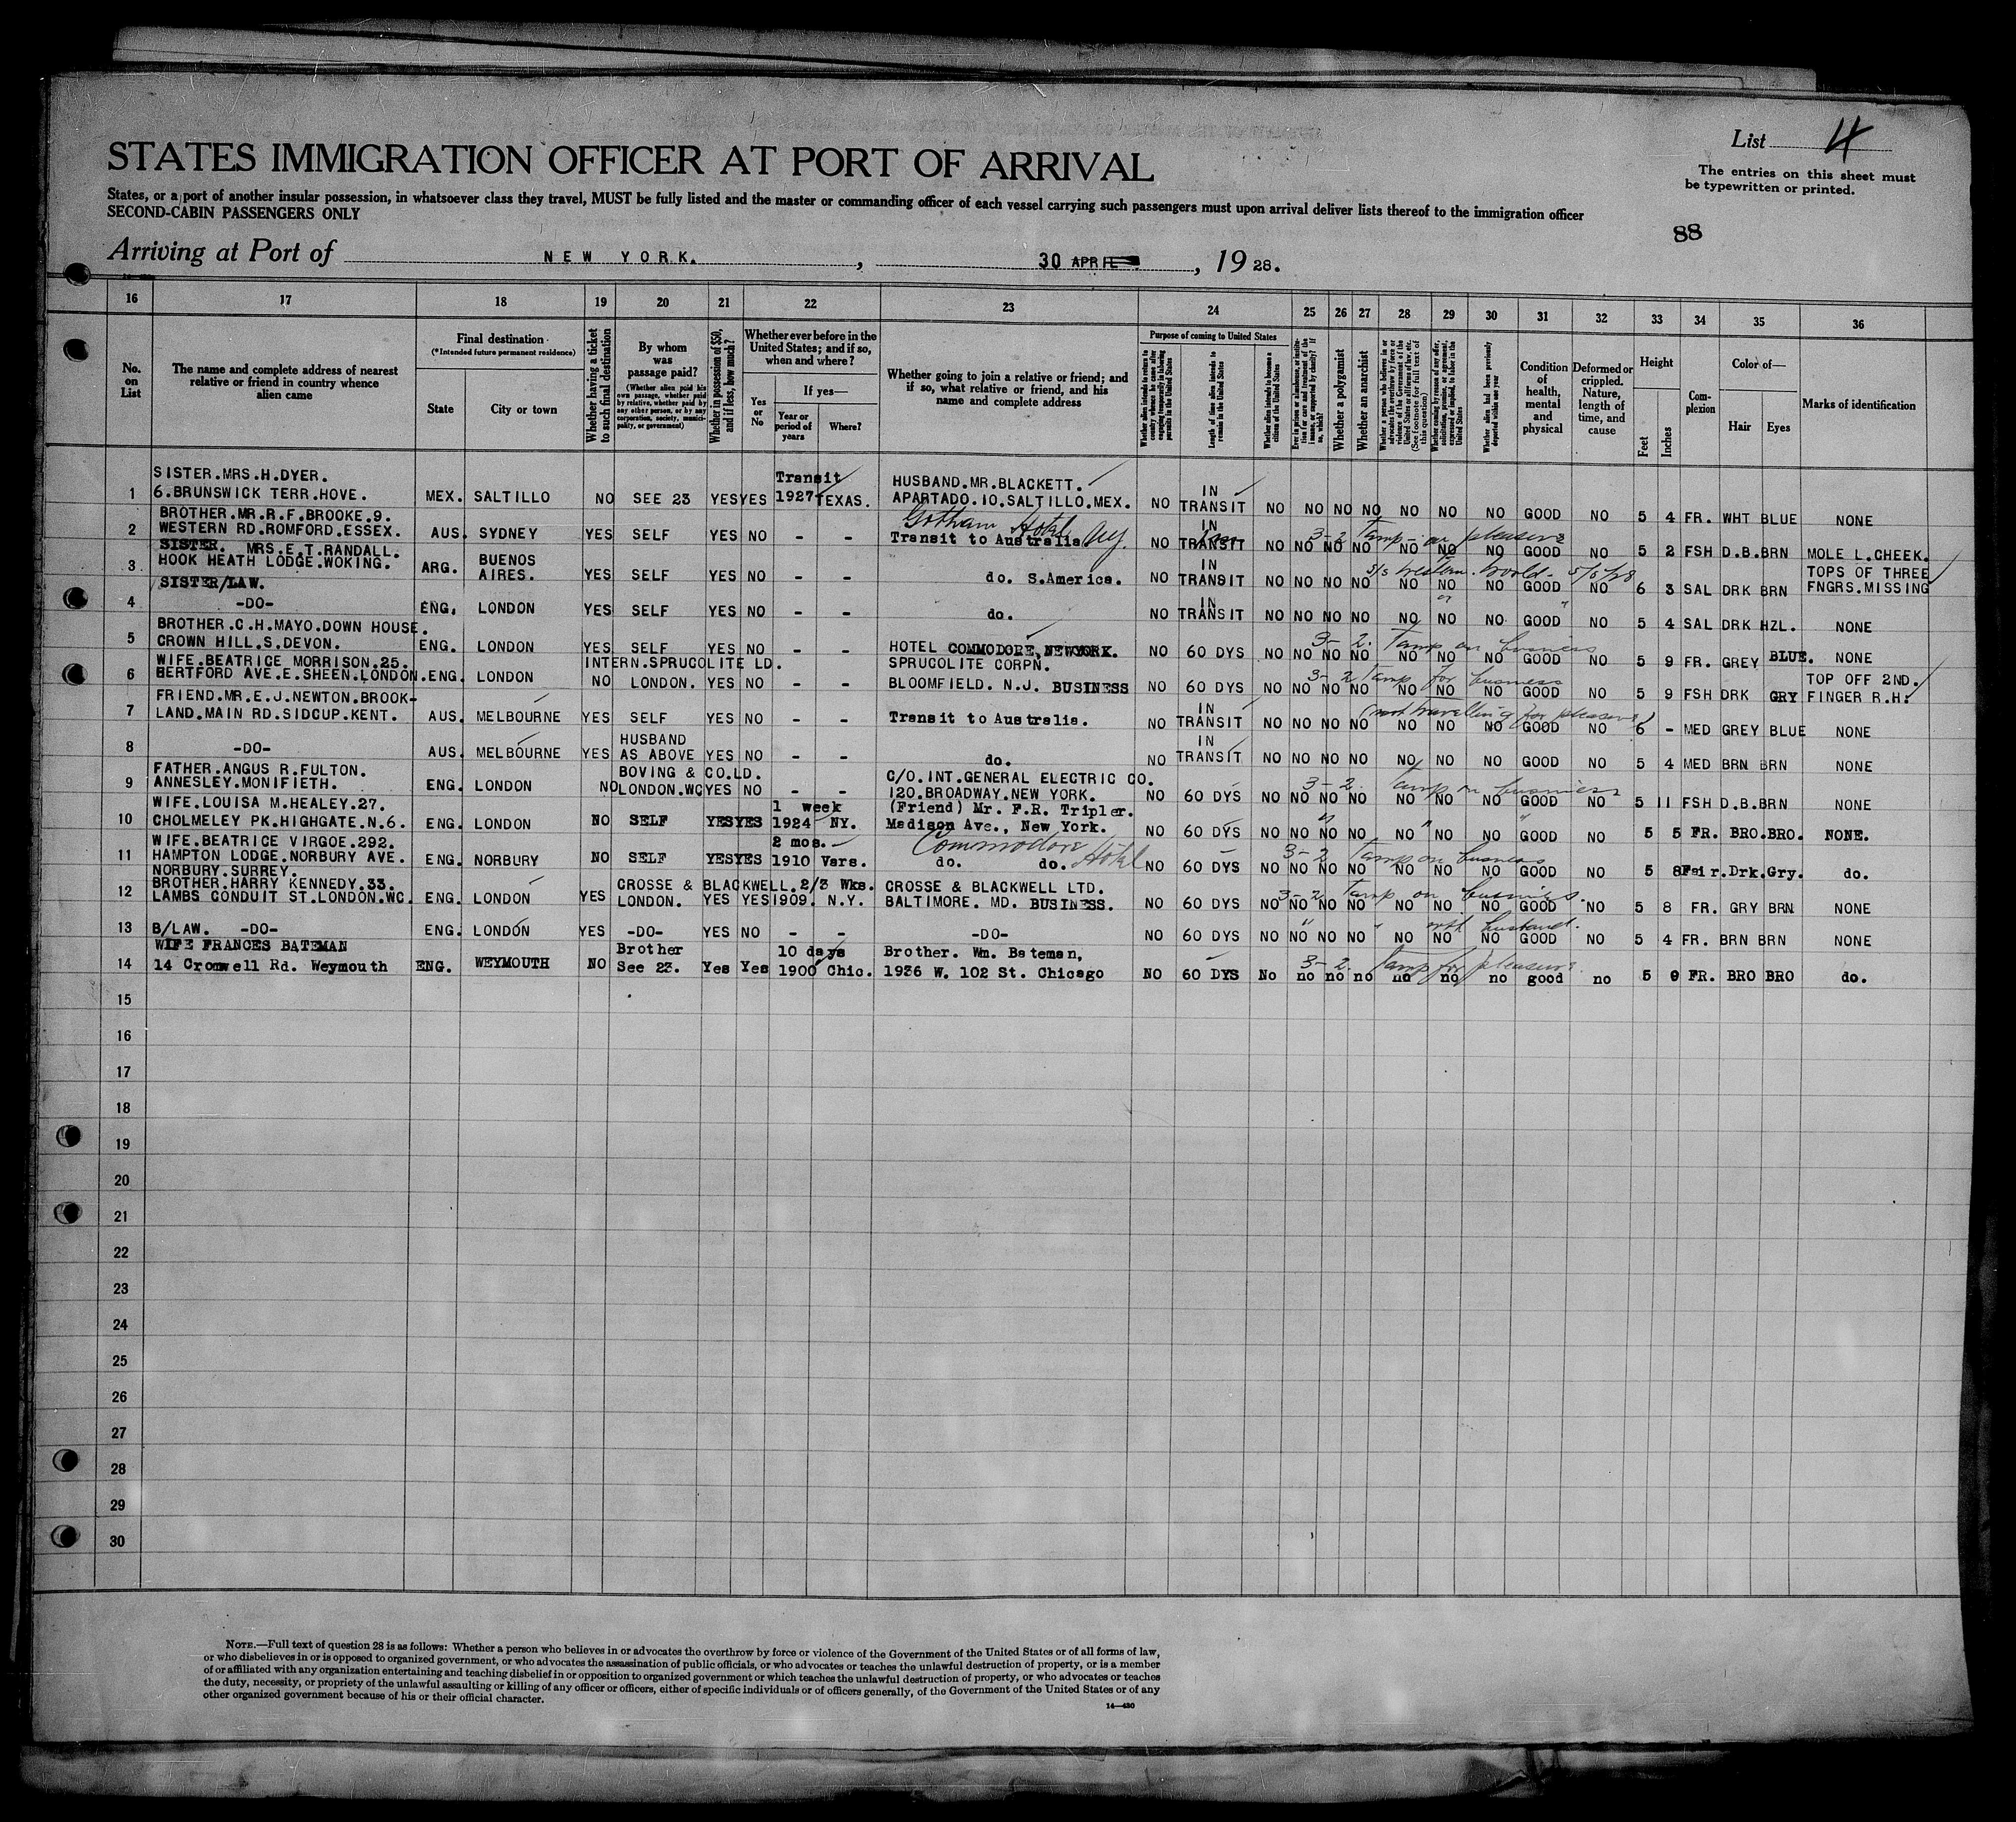 List 4
The entries on this sheet must
be typewritten or printed.
STATES IMMIGRATION OFFICER AT PORT OF ARRIVAL
States, or a port of another insular possession, in whatsoever class they travel, MUST be fully listed and the master or commanding officer of each vessel carrying such passengers must upon arrival deliver lists thereof to the immigration officer
SECOND-CABIN PASSENGERS ONLY
88
Arriving at Port of NEW YORK. , 30 APRIL , 19 28.
16 17 18 19 20 21 22 23 24 25 26 27 28 29 30 31 32 33 34 35 36
No. on List
The name and complete address of nearest relative or friend in country whence alien came
Final destination (*Intended future permanent residence)
State
City or town
Whether having a ticket to such final destination
By whom was passage paid?
(Whether alien paid his own passage, whether paid by relative, whether paid by any other person, or by any corporation, society, municipality, or government)
Whether in possession of $50, and if less, how much?
Whether ever before in the United States; and if so, when and where?
Yes or No
If yes—
Year or period of years
Where?
Whether going to join a relative or friend; and if so, what relative or friend, and his name and complete address
Purpose of coming to United States
Length of time alien intends to remain in the United States
Whether alien intends to become a citizen of the United States
Whether a polygamist
Whether an anarchist
Whether alien had been previously deported within one year
Condition of health, mental and physical
Deformed or crippled. Nature, length of time, and cause
Height
Feet
Inches
Complexion
Color of—
Hair
Eyes
Marks of identification
SISTER.MRS.H.DYER. Transit HUSBAND.MR.BLACKETT. IN
1 6.BRUNSWICK TERR.HOVE. MEX. SALTILLO NO SEE 23 YES YES 1927 TEXAS. APARTADO.10.SALTILLO.MEX. NO TRANSIT NO NO NO NO NO NO NO GOOD NO 5 4 FR. WHT BLUE NONE
BROTHER.MR.R.F.BROOKE.9. Gotham Hotel NY. IN 3-2 Temp - on pleasure
2 WESTERN RD.ROMFORD.ESSEX. AUS. SYDNEY YES SELF YES NO - - Transit to Australia. NO TRANSIT NO NO NO NO NO NO NO GOOD NO 5 2 FSH D.B. BRN MOLE L.CHEEK.
SISTER. MRS.E.T.RANDALL. BUENOS IN S/S Western World - 5/5/28 TOPS OF THREE
3 HOOK HEATH LODGE.WOKING. ARG. AIRES. YES SELF YES NO - - do. S.America. NO TRANSIT NO NO NO NO NO NO NO GOOD NO 6 3 SAL DRK BRN FNGRS.MISSING
SISTER/LAW. IN
4 -DO- ENG. LONDON YES SELF YES NO - - do. NO TRANSIT NO NO NO NO NO NO NO GOOD NO 5 4 SAL DRK HZL. NONE
BROTHER.C.H.MAYO.DOWN HOUSE. 3-2. Temp on business
5 CROWN HILL.S.DEVON. ENG. LONDON YES SELF YES NO - - HOTEL COMMODORE, NEWYORK. NO 60 DYS NO NO NO NO NO NO NO GOOD NO 5 9 FR. GREY BLUE. NONE
WIFE.BEATRICE MORRISON.25. INTERN.SPRUCOLITE LD. SPRUCOLITE CORPN. 3-2 Temp for business TOP OFF 2ND.
6 BERTFORD AVE.E.SHEEN.LONDON. ENG. LONDON NO LONDON. YES NO - - BLOOMFIELD. N.J. BUSINESS NO 60 DYS NO NO NO NO NO NO NO GOOD NO 5 9 FSH DRK GRY FINGER R.H.
FRIEND.MR.E.J.NEWTON.BROOK- IN (not travelling for pleasure)
7 LAND.MAIN RD.SIDCUP.KENT. AUS. MELBOURNE YES SELF YES NO - - Transit to Australia. NO TRANSIT NO NO NO NO NO NO NO GOOD NO 6 - MED GREY BLUE NONE
HUSBAND IN
8 -DO- AUS. MELBOURNE YES AS ABOVE YES NO - - do. NO TRANSIT NO NO NO NO NO NO NO GOOD NO 5 4 MED BRN BRN NONE
FATHER.ANGUS R.FULTON. BOVING & CO.LD. C/O.INT.GENERAL ELECTRIC CO. 3-2. Temp on business
9 ANNESLEY.MONIFIETH. ENG. LONDON NO LONDON.WC YES NO - - 120.BROADWAY.NEW YORK. NO 60 DYS NO NO NO NO NO NO NO GOOD NO 5 11 FSH D.B. BRN NONE
WIFE.LOUISA M.HEALEY.27. 1 week (Friend) Mr. F.R. Tripler.
10 CHOLMELEY PK.HIGHGATE.N.6. ENG. LONDON NO SELF YES YES 1924 NY. Madison Ave., New York. NO 60 DYS NO NO NO NO NO NO NO GOOD NO 5 5 FR. BRO. BRO. NONE.
WIFE.BEATRICE VIRGOE.292. 2 mos. Commodore Hotel 3-2 Temp on business
11 HAMPTON LODGE.NORBURY AVE. ENG. NORBURY NO SELF YES YES 1910 Vars. do. do. NO 60 DYS NO NO NO NO NO NO NO GOOD NO 5 8 Fair. Drk. Gry. do.
NORBURY.SURREY.
BROTHER.HARRY KENNEDY.33. CROSSE & BLACKWELL. 2/3 Wks. CROSSE & BLACKWELL LTD. 3-2 Temp on business.
12 LAMBS CONDUIT ST.LONDON.WC. ENG. LONDON YES LONDON. YES YES 1909. N.Y. BALTIMORE. MD. BUSINESS. NO 60 DYS NO NO NO NO NO NO NO GOOD NO 5 8 FR. GRY BRN NONE
with husband.
13 B/LAW. -DO- ENG. LONDON YES -DO- YES NO - - -DO- NO 60 DYS NO NO NO NO NO NO NO GOOD NO 5 4 FR. BRN BRN NONE
WIFE FRANCES BATEMAN Brother 10 days Brother. Wm. Bateman, 3-2. Temp for pleasure
14 14 Cromwell Rd. Weymouth ENG. WEYMOUTH NO See 23. Yes Yes 1900 Chic. 1936 W. 102 St. Chicago NO 60 DYS No no no no no no no good no 5 9 FR. BRO BRO do.
15
16
17
18
19
20
21
22
23
24
25
26
27
28
29
30
NOTE.—Full text of question 28 is as follows: Whether a person who believes in or advocates the overthrow by force or violence of the Government of the United States or of all forms of law,
or who disbelieves in or is opposed to organized government, or who advocates the assassination of public officials, or who advocates or teaches the unlawful destruction of property, or is a member
of or affiliated with any organization entertaining and teaching disbelief in or opposition to organized government or which teaches the unlawful destruction of property, or who advocates or teaches
the duty, necessity, or propriety of the unlawful assaulting or killing of any officer or officers, either of specific individuals or of officers generally, of the Government of the United States or of any
other organized government because of his or their official character.
14—430